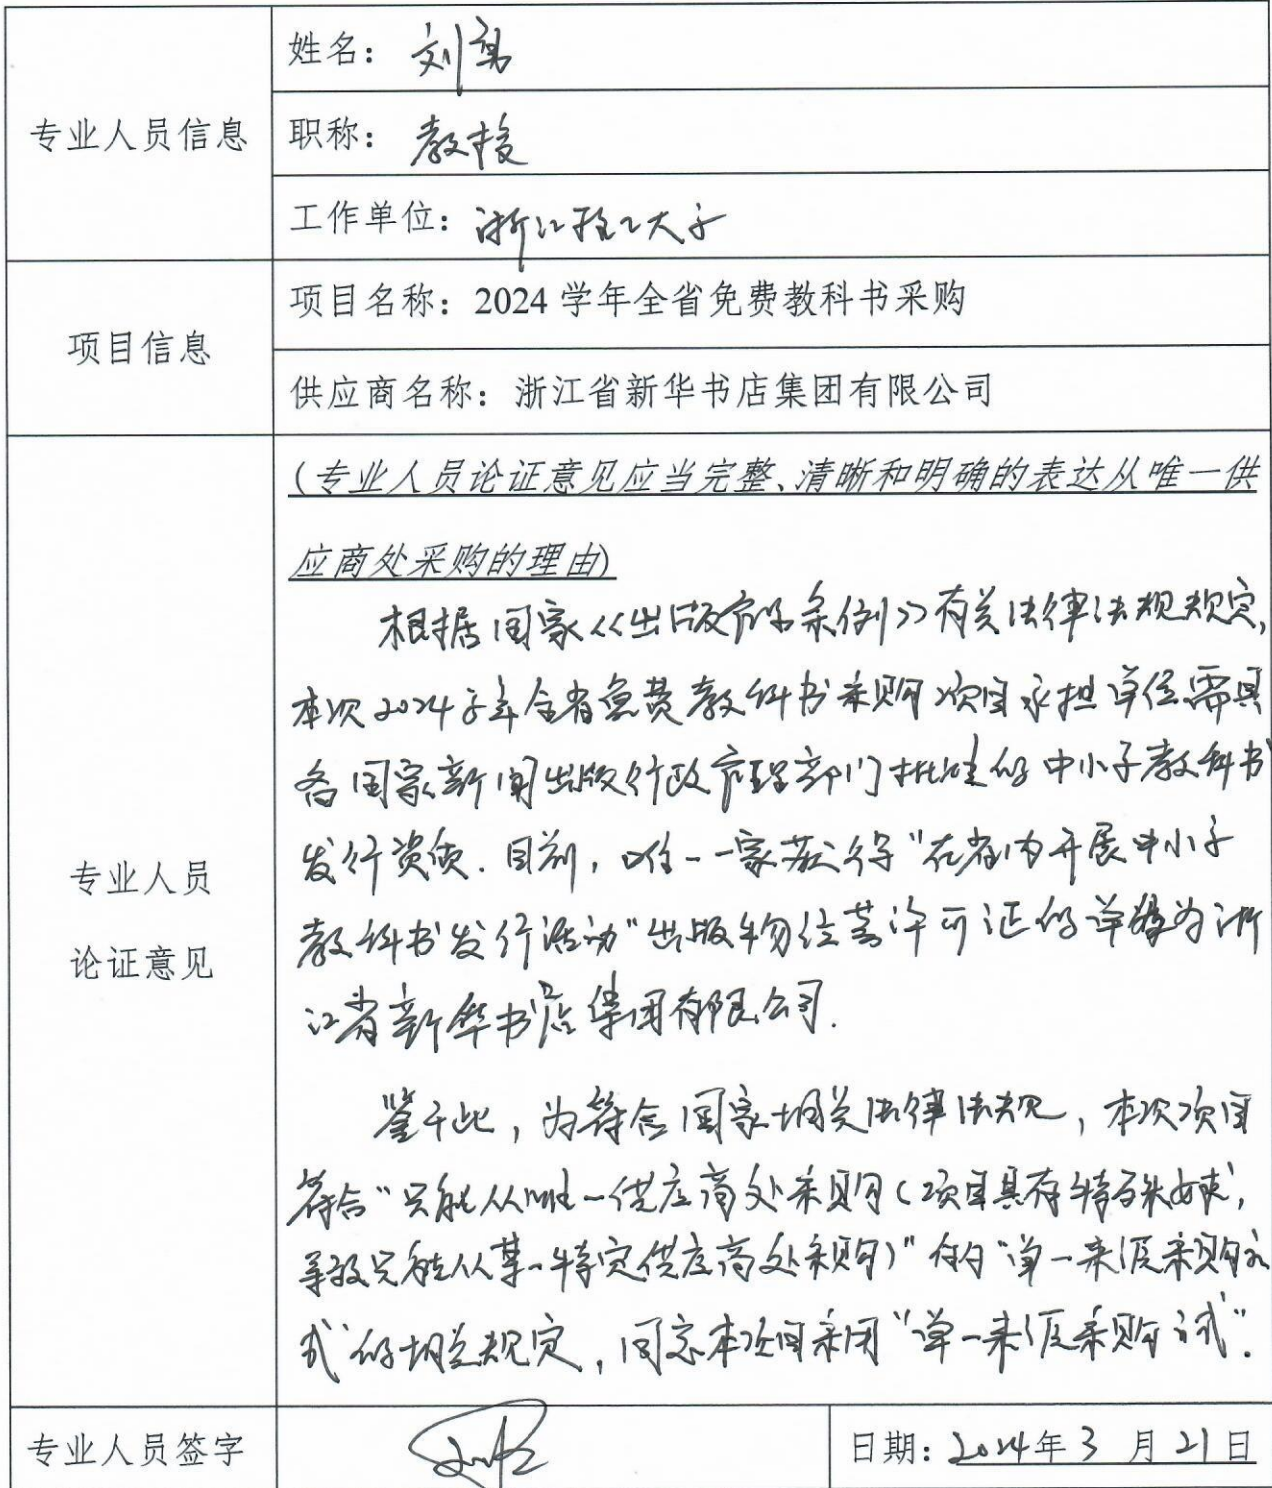 专业人员信息
姓名：刘勇
职称：教授
工作单位：浙江理工大学
项目信息
项目名称：2024 学年全省免费教科书采购
供应商名称：浙江省新华书店集团有限公司
专业人员
论证意见
(专业人员论证意见应当完整、清晰和明确的表达从唯一供
应商处采购的理由)
根据国家《出版管理条例》有关法律法规规定，
本次2024学年全省免费教科书采购项目承担单位需具
备国家新闻出版行政管理部门批准的中小学教科书
发行资质．目前，唯一一家获得"在省内开展中小学
教科书发行活动"出版物经营许可证的单位为浙
江省新华书店集团有限公司．
鉴于此，为符合国家相关法律法规，本次项目
符合"只能从唯一供应商处采购（项目具有特殊要求，
导致只能从某一特定供应商处采购）"的"单一来源采购方
式"的相关规定，同意本项目采用"单一来源采购方式"．
专业人员签字
日期：2024年3月21日